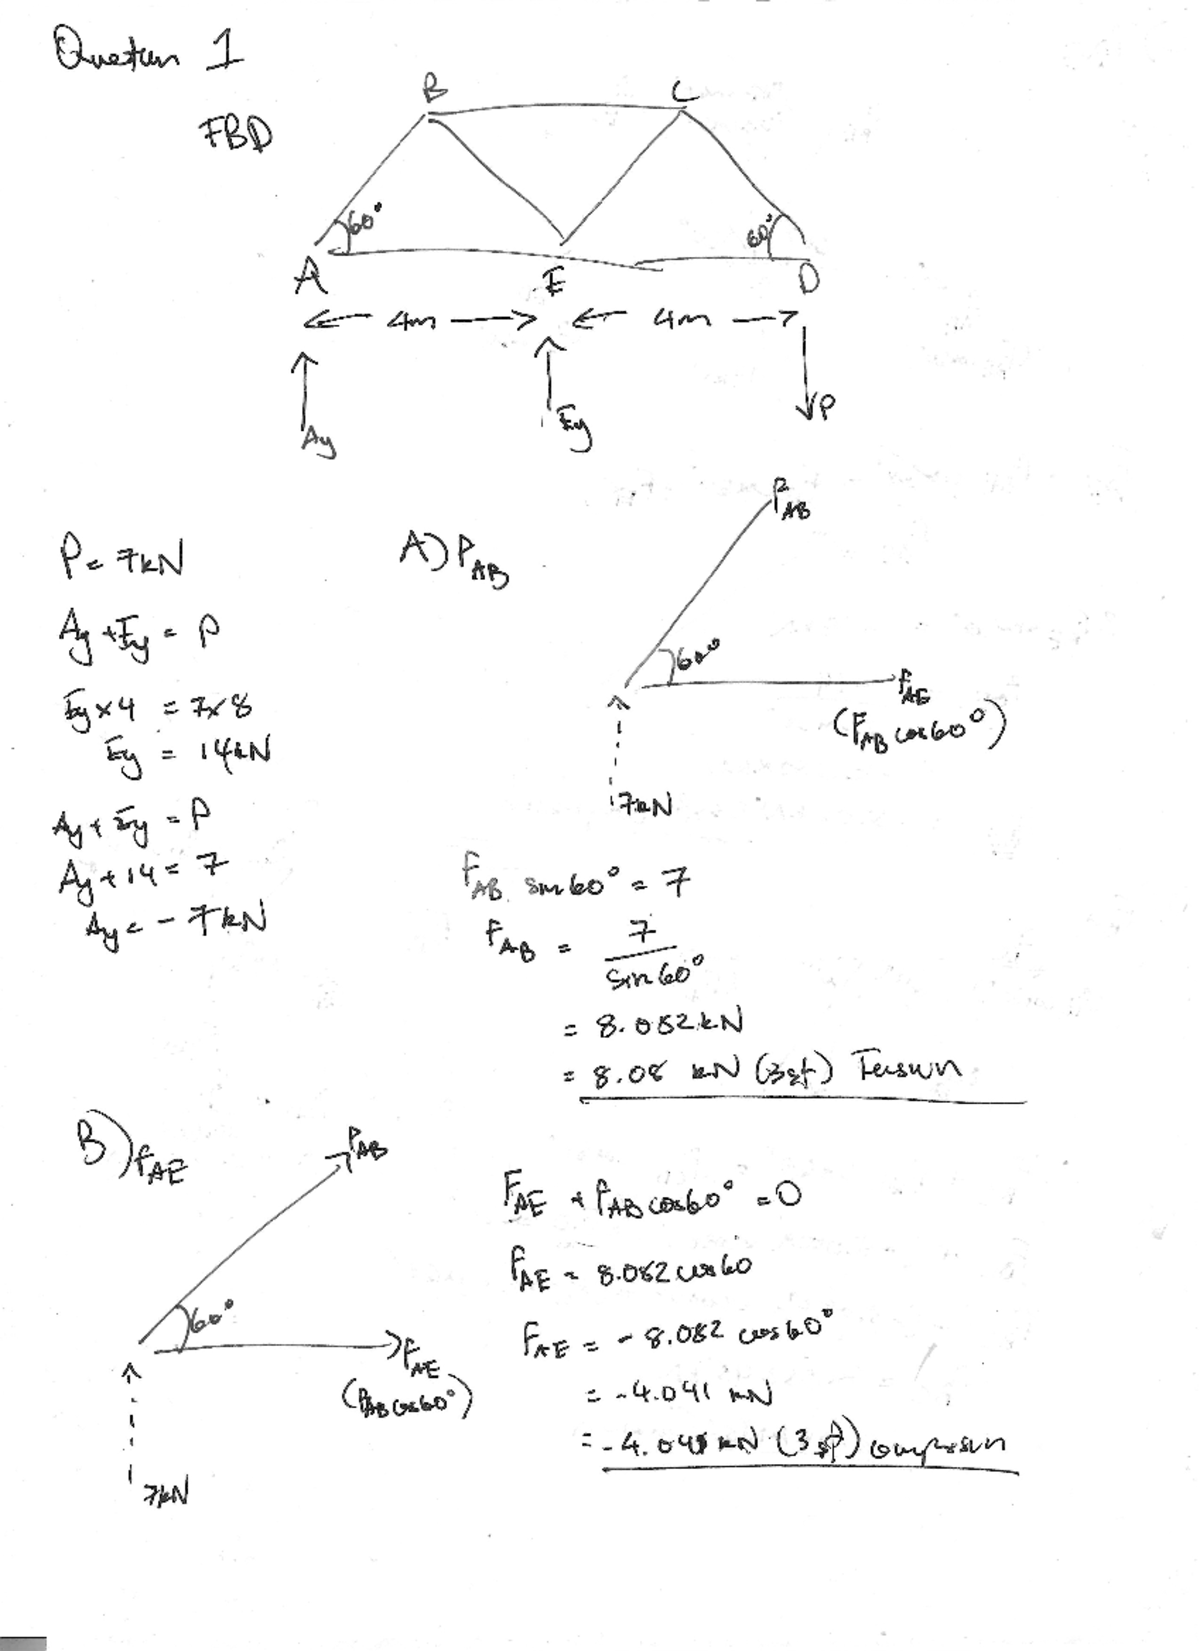 Question 1
FBD
B C
60° 60°
A E D
4m 4m
Ay Ey P
P = 7kN
Ay + Ey = P
Ey x 4 = 7x8
Ey = 14kN
Ay + Ey = P
Ay + 14 = 7
Ay = - 7kN
A) FAB
FAB
60°
FAE
(FAB cos60°)
7kN
FAB sin60° = 7
FAB = 7
sin60°
= 8.082kN
= 8.08 kN (3sf) Tension
B) FAE
FAB
60°
FAE
(FAB cos60°)
7kN
FAE + FAB cos60° = 0
FAE = 8.082 cos60
FAE = - 8.082 cos60°
= -4.041 kN
= -4.04 kN (3 sf) compression